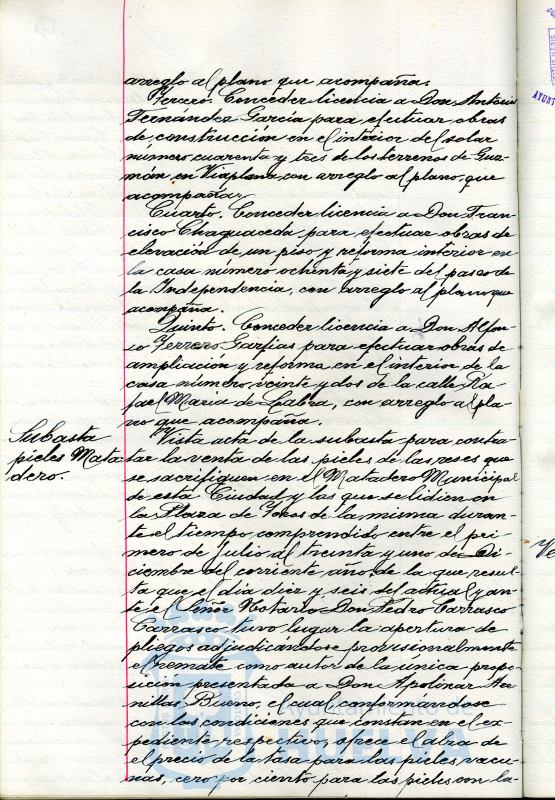 arreglo al plano que acompaña.
Tercero. Conceder licencia a Don Antonio
Fernández García para efectuar obras
de construcción en el interior del solar
número cuarenta y tres de los terrenos de Guz-
mán en Viaplana con arreglo al plano que
acompaña.
Cuarto. Conceder licencia a Don Fran-
cisco Chaguaceda para efectuar obras de
elevación de un piso y reforma interior en
la casa número ochenta y siete del paseo de
la Independencia, con arreglo al plano que
acompaña.
Quinto. Conceder licencia a Don Alfon-
so Ferrero Garfias para efectuar obras de
ampliación y reforma en el interior de la
casa número veinte y dos de la calle Ra-
fael María de Labra, con arreglo al pla-
no que acompaña.
Subasta
pieles Mata-
dero.
Vista acta de la subasta para contra-
tar la venta de las pieles de las reses que
se sacrifiquen en el Matadero Municipal
de esta Ciudad y las que se lidien en
la Plaza de Toros de la misma duran-
te el tiempo comprendido entre el pri-
mero de Julio al treinta y uno de Di-
ciembre del corriente año, de la que resul-
ta que el día diez y seis del actual y an-
te el Señor Notario Don Pedro Carrasco
Carrasco tuvo lugar la apertura de
pliegos adjudicándose provisionalmente
el remate como autor de la única propo-
sición presentada a Don Apolinar Are-
nillas Bueno, el cual conformándose
con las condiciones que constan en el ex-
pediente respectivo, ofrece el alza de
el precio de la tasa para las pieles vacu-
nas, cero por ciento para las pieles con la-
Ayuntamiento de
HUELVA